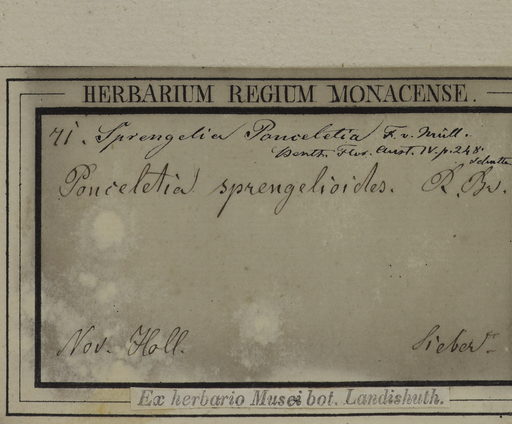 HERBARIUM REGIUM MONACENSE.
71. Sprengelia Ponceletia F. v. Müll.
Benth. Flor. Aust. IV. p. 248.
Ponceletia sprengelioides. R. Br.
Nov. Holl. Sieber
Ex herbario Musei bot. Landishuth.